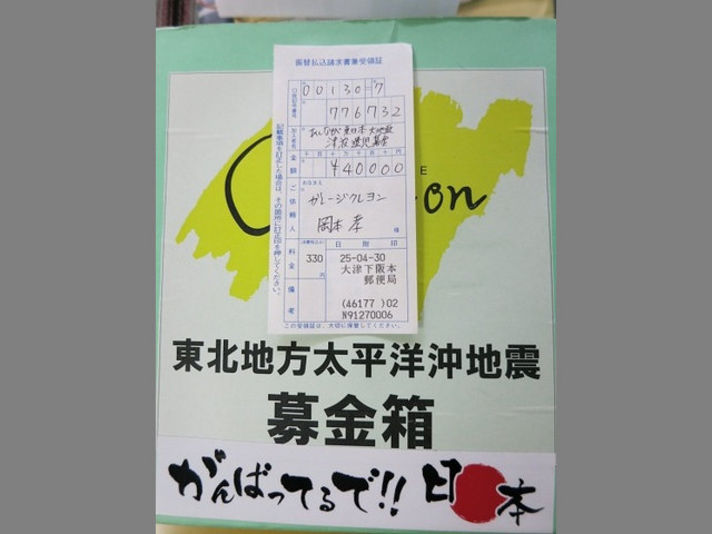 振替払込請求書兼受領証
口座記号番号
00130=7
776732
加入者名
あしなが東日本大地震
津波遺児基金
金額
千百十万千百十円
¥40000
ご依頼人
おなまえ
ガレージクレヨン
岡本孝
様
料金
消費税込み
330
円
日附印
25-04-30
大津下阪本
郵便局
備考
(46177 )02
N91270006
記載事項を訂正した場合は、その箇所に訂正印を押してください。
この受領証は、大切に保管してください。
E
C
on
東北地方太平洋沖地震
募金箱
がんばってるで!! 日本